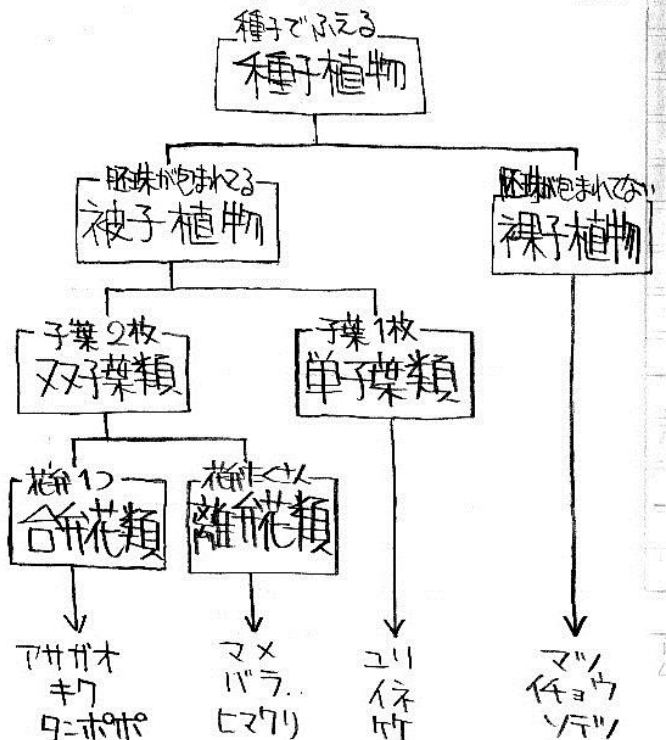 種子でふえる
種子植物
胚珠が包まれてる
被子植物
胚珠が包まれてない
裸子植物
子葉2枚
双子葉類
子葉1枚
単子葉類
花弁1つ
合弁花類
花弁たくさん
離弁花類
アサガオ
キク
タンポポ
マメ
バラ..
ヒマワリ
ユリ
イネ
ケケ
マツ
イチョウ
ソテツ